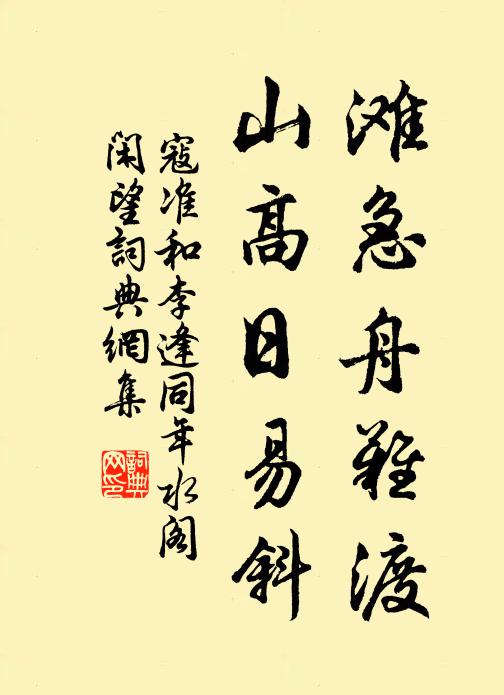 滩急舟難渡
山高日易斜
寇准和李逢同年水阁
闲望詞典網集
詞典
网印